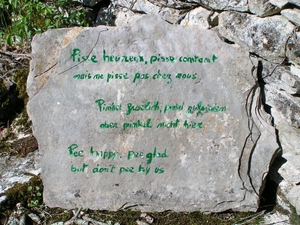 Pisse heureux, pisse content
mais ne pisse pas chez nous
Pinkel fröhlich, pinkel zufrieden
aber pinkel nicht hier
Pee happy, pee glad
but don't pee by us